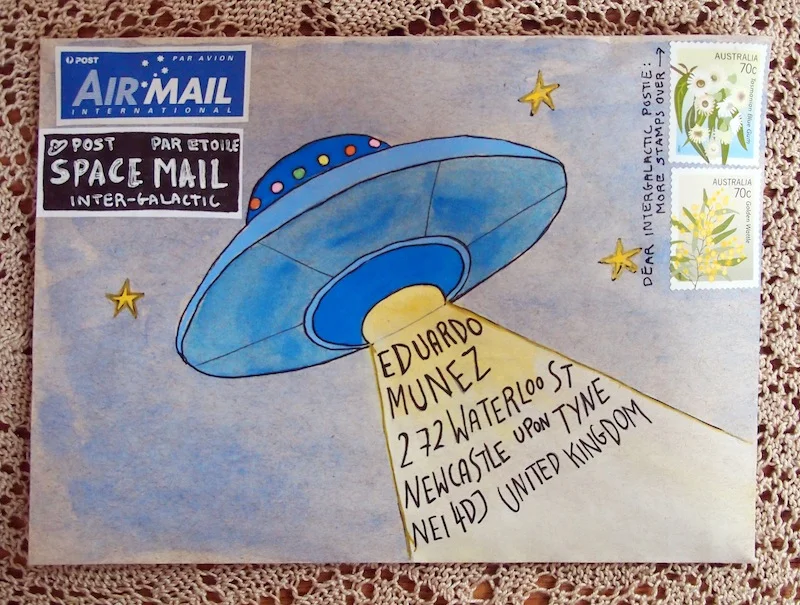 POST PAR AVION
AIR MAIL
INTERNATIONAL
POST PAR ETOILE
SPACE MAIL
INTER-GALACTIC
DEAR INTERGALACTIC POSTIE:
MORE STAMPS OVER →
AUSTRALIA
70c
Tasmanian Blue Gum
AUSTRALIA
70c
Golden Wattle
EDUARDO
MUNEZ
272 WATERLOO ST
NEWCASTLE UPON TYNE
NE1 4DJ UNITED KINGDOM